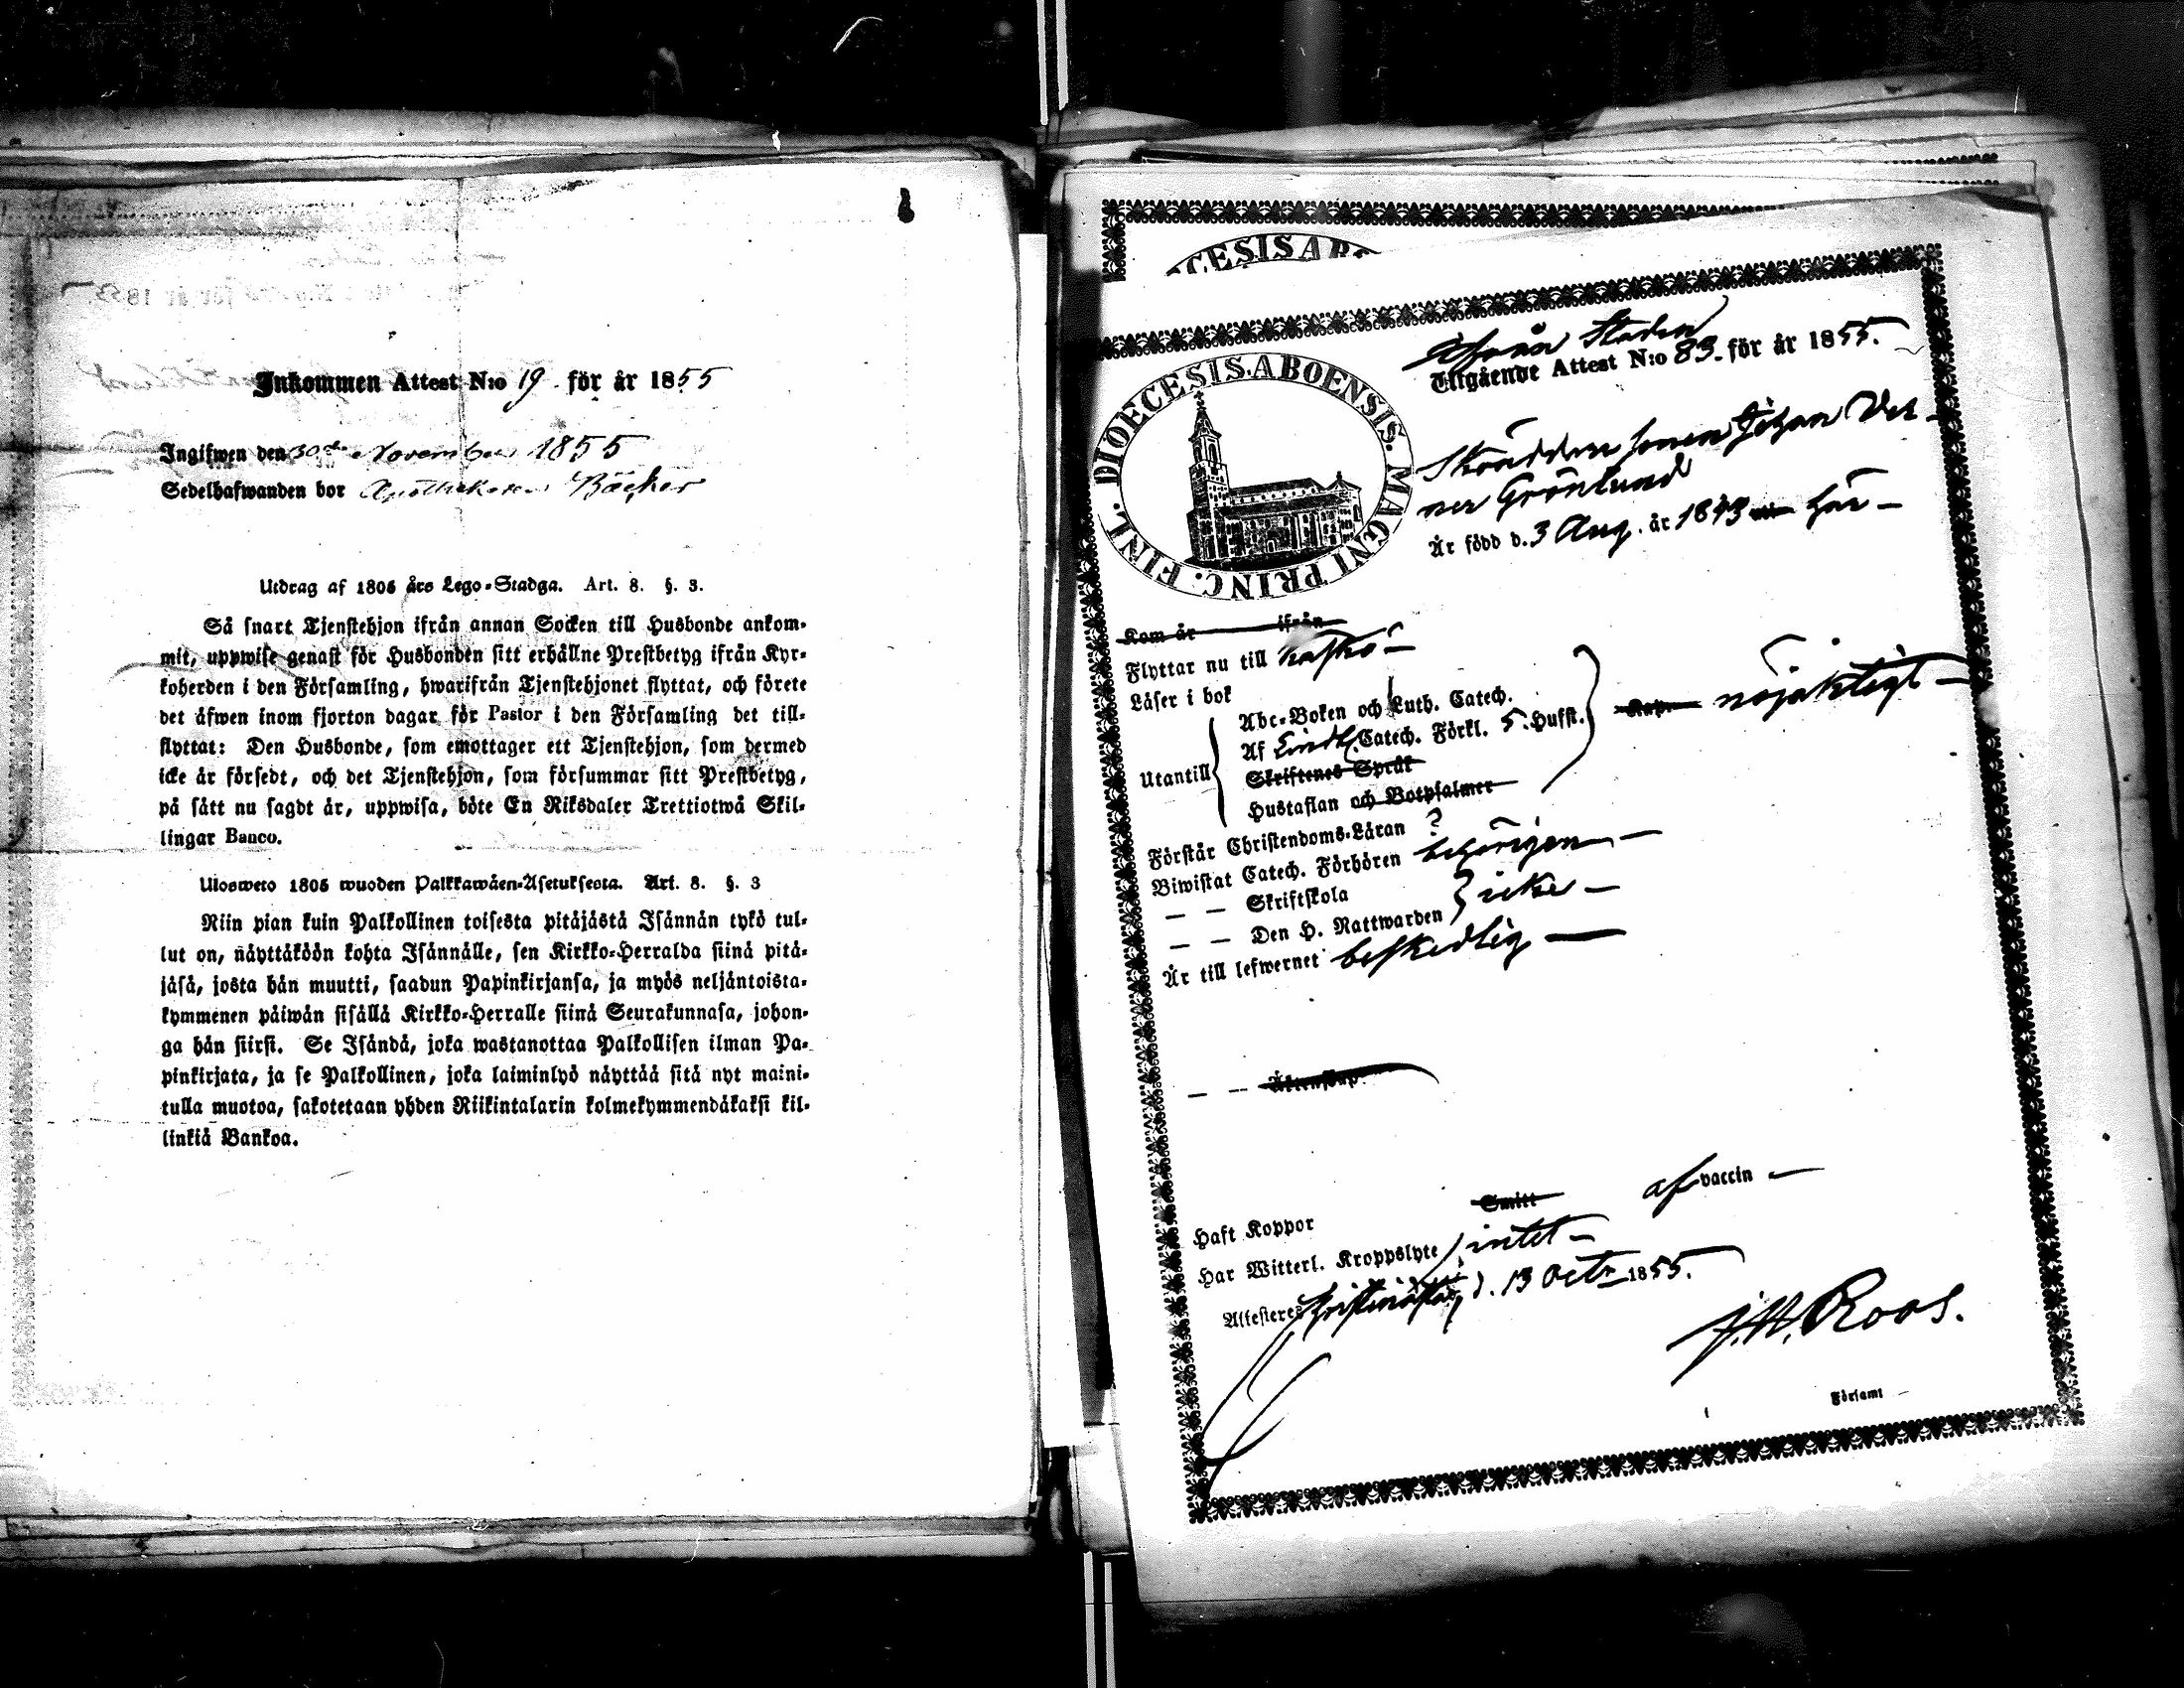 Inkommen Attest N:o 19 för år 1855
Ingifwen den 30de November 1855
Sedelhafwanden bor Apothekaren Bäcker
Utdrag af 1805 års Lego-Stadga. Art. 8. §. 3.
Så snart Tjenstehjon ifrån annan Socken till Husbonde ankom-
mit, uppwise genast för Husbonden sitt erhållne Prestbetyg ifrån Kyr-
koherden i den Församling, hwarifrån Tjenstehjonet flyttat, och förete
det äfwen inom fjorton dagar för Pastor i den Församling det till-
flyttat: Den Husbonde, som emottager ett Tjenstehjon, som dermed
icke är försedt, och det Tjenstehjon, som försummar sitt Prestbetyg,
på sätt nu sagdt är, uppwisa, böte En Riksdaler Trettiotwå Skil-
lingar Banco.
Ulosweto 1805 wuoden Palkkawäen-Asetuksesta. Art. 8. §. 3
Niin pian kuin Palkollinen toisesta pitäjästä Isännän tykö tul-
lut on, näyttäköön kohta Isännälle, sen Kirkko-Herralda siinä pitä-
jäsä, josta hän muutti, saadun Papinkirjansa, ja myös neljäntoista-
kymmenen päiwän sisällä Kirkko-Herralle siinä Seurakunnasa, johon-
ga hän siirsi. Se Isändä, joka wastanottaa Palkollisen ilman Pa-
pinkirjata, ja se Palkollinen, joka laiminlyö näyttää sitä nyt maini-
tulla muotoa, sakotetaan yhden Riikintalarin kolmekymmendäkaksi kil-
linkiä Bankoa.
DIOECESIS. ABOENSIS. MAGNI PRINC. FINL.
ifrån Staden
Utgående Attest N:o 83. för år 1855.
Skräddare sonen Johan Ver-
ner Grönlund
Är född d. 3 Aug. år 1843 här
Kom år ifrån
Flyttar nu till Kaskö
Läser i bok
Utantill
Abc-Boken och Luth. Catech.
Af Lindb. Catech. Förkl. 5. Hufst. nöjaktigt
Skriftenes Språk
Hustaflan och Botpsalmer
Förstår Christendoms-Läran ?
Biwistat Catech. Förhören behörigen
— — Skriftskola
— — Den H. Nattwarden icke
Är till lefwernet beskedlig
— — Äktenskap
Haft Koppor Smitt af vaccin
Har Witterl. Kroppslyte intet
Attesteres Kristinestad d. 13 Octr 1855.
J.W. Roos.
Förfamt